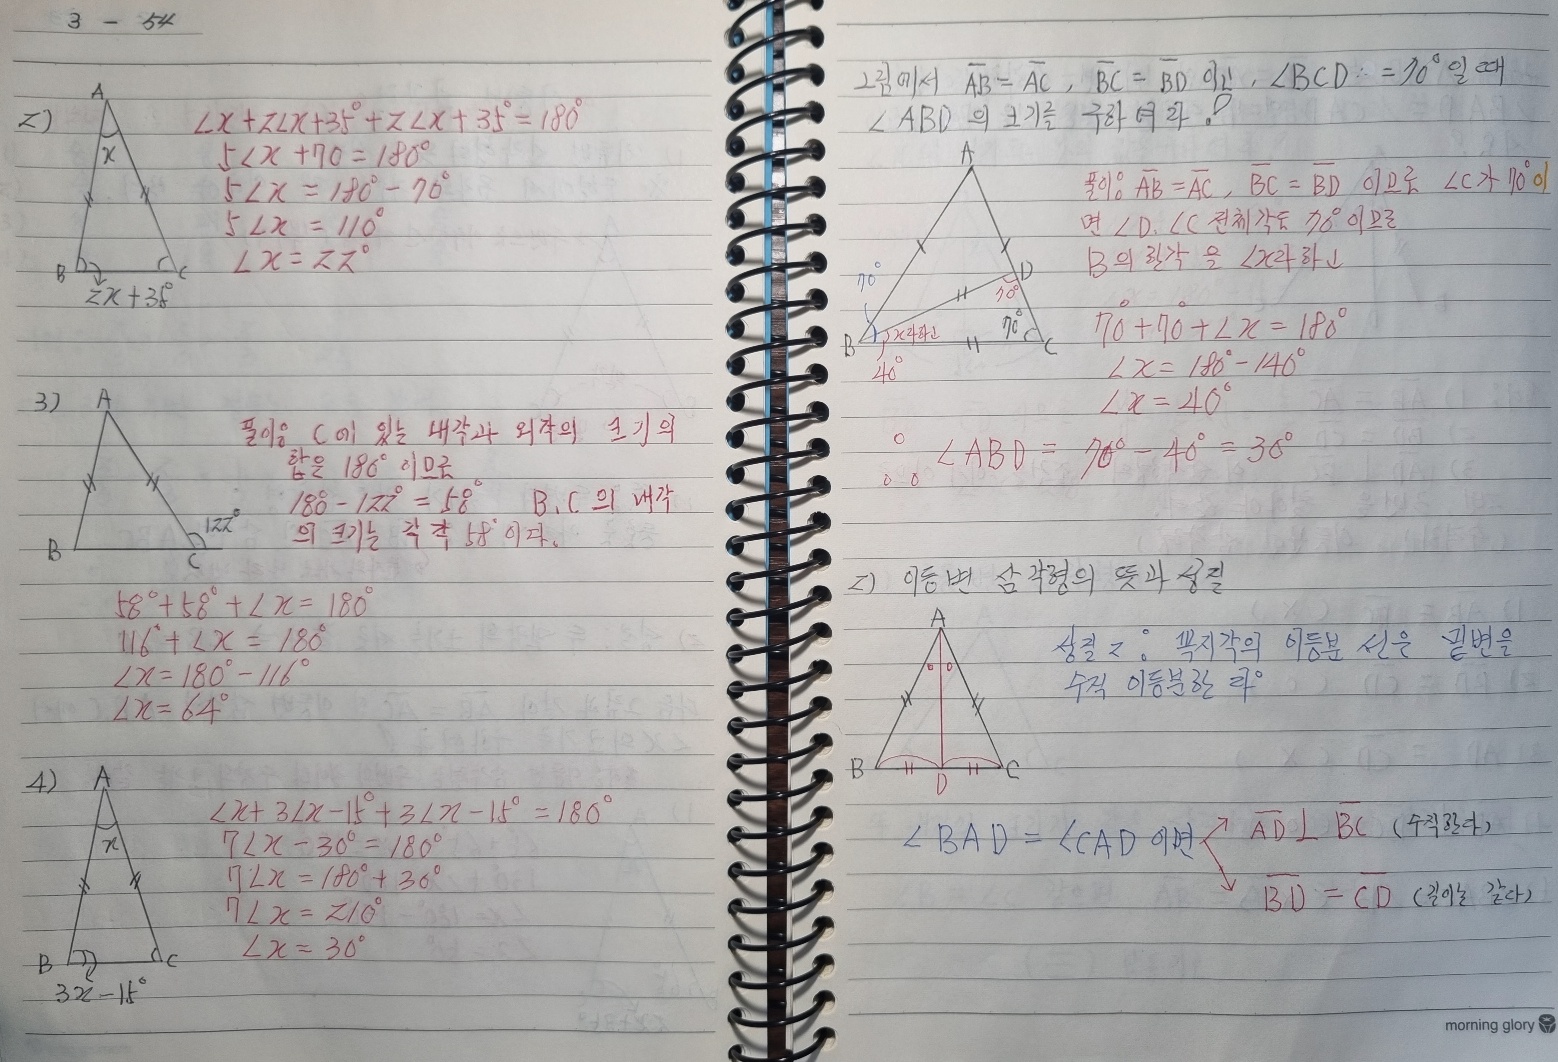 3 - 54
2)
A
x
B
C
2x+35°
∠x+2∠x+35°+2∠x+35°=180°
5∠x+70=180°
5∠x=180°-70°
5∠x=110°
∠x=22°
3)
A
B
C
122°
풀이: C에 있는 내각과 외각의 크기의
합은 180°이므로
180-122°=58° B, C의 내각
의 크기는 각각 58°이다.
58°+58°+∠x=180°
116°+∠x=180°
∠x=180°-116°
∠x=64°
4)
A
x
B
C
3x-15°
∠x+3∠x-15°+3∠x-15°=180°
7∠x-30°=180°
7∠x=180°+30°
7∠x=210°
∠x=30°
그림에서 AB=AC, BC=BD 이고, ∠BCD=70°일 때
∠ABD의 크기를 구하여라?
A
D
B
C
70°
70°
70°
x라하고
40°
풀이: AB=AC, BC=BD 이므로 ∠C가 70°이
면 ∠D, ∠C 전체각도 70°이므로
B의 한각을 ∠x라하고
70°+70°+∠x=180°
∠x=180°-140°
∠x=40°
∴ ∠ABD=70°-40°=30°
2) 이등변 삼각형의 뜻과 성질
A
B
D
C
성질 2: 꼭지각의 이등분 선은 밑변을
수직 이등분한다.
∠BAD=∠CAD 이면
AD⊥BC (수직한다)
BD=CD (길이는 같다)
morning glory